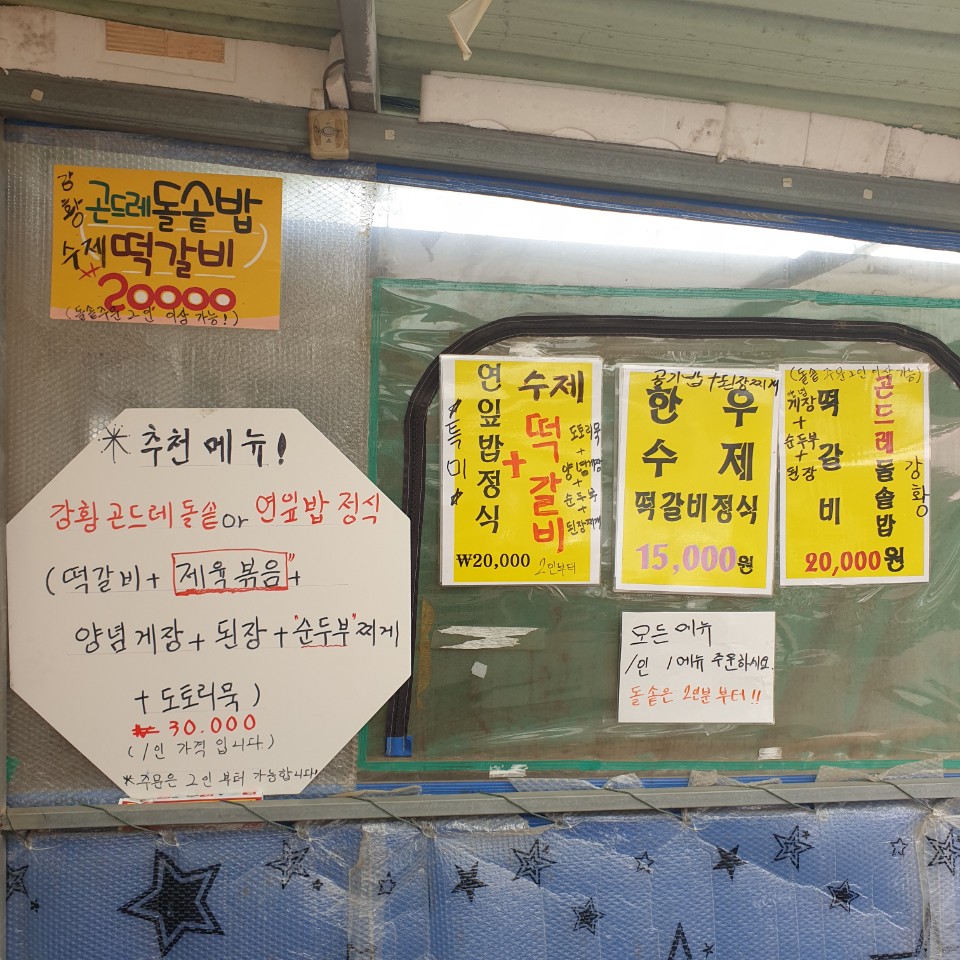 강황
곤드레돌솥밥
수제떡갈비
20000
(돌솥주문 2인 이상 가능!)
* 추천 메뉴!
강황 곤드레 돌솥 or 연잎밥 정식
(떡갈비 + 제육볶음" +
양념게장 + 된장 + "순두부"찌게
+ 도토리묵)
₩ 30.000
(1인 가격 입니다)
*주문은 2인 부터 가능합니다!
연잎밥정식
*특미*
수제
떡갈비
+
도토리묵
+
양념게장
+
순두부
+
된장찌게
₩20,000 2인부터
공기밥+된장찌게
한우
수제
떡갈비정식
15,000원
(돌솥 주문 2인이상 가능)
양념
게장
+
순두부
+
된장
떡갈비
곤드레돌솥밥
강황
20,000원
모든 메뉴
1인 1메뉴 주문하시요.
돌솥은 2인분 부터!!